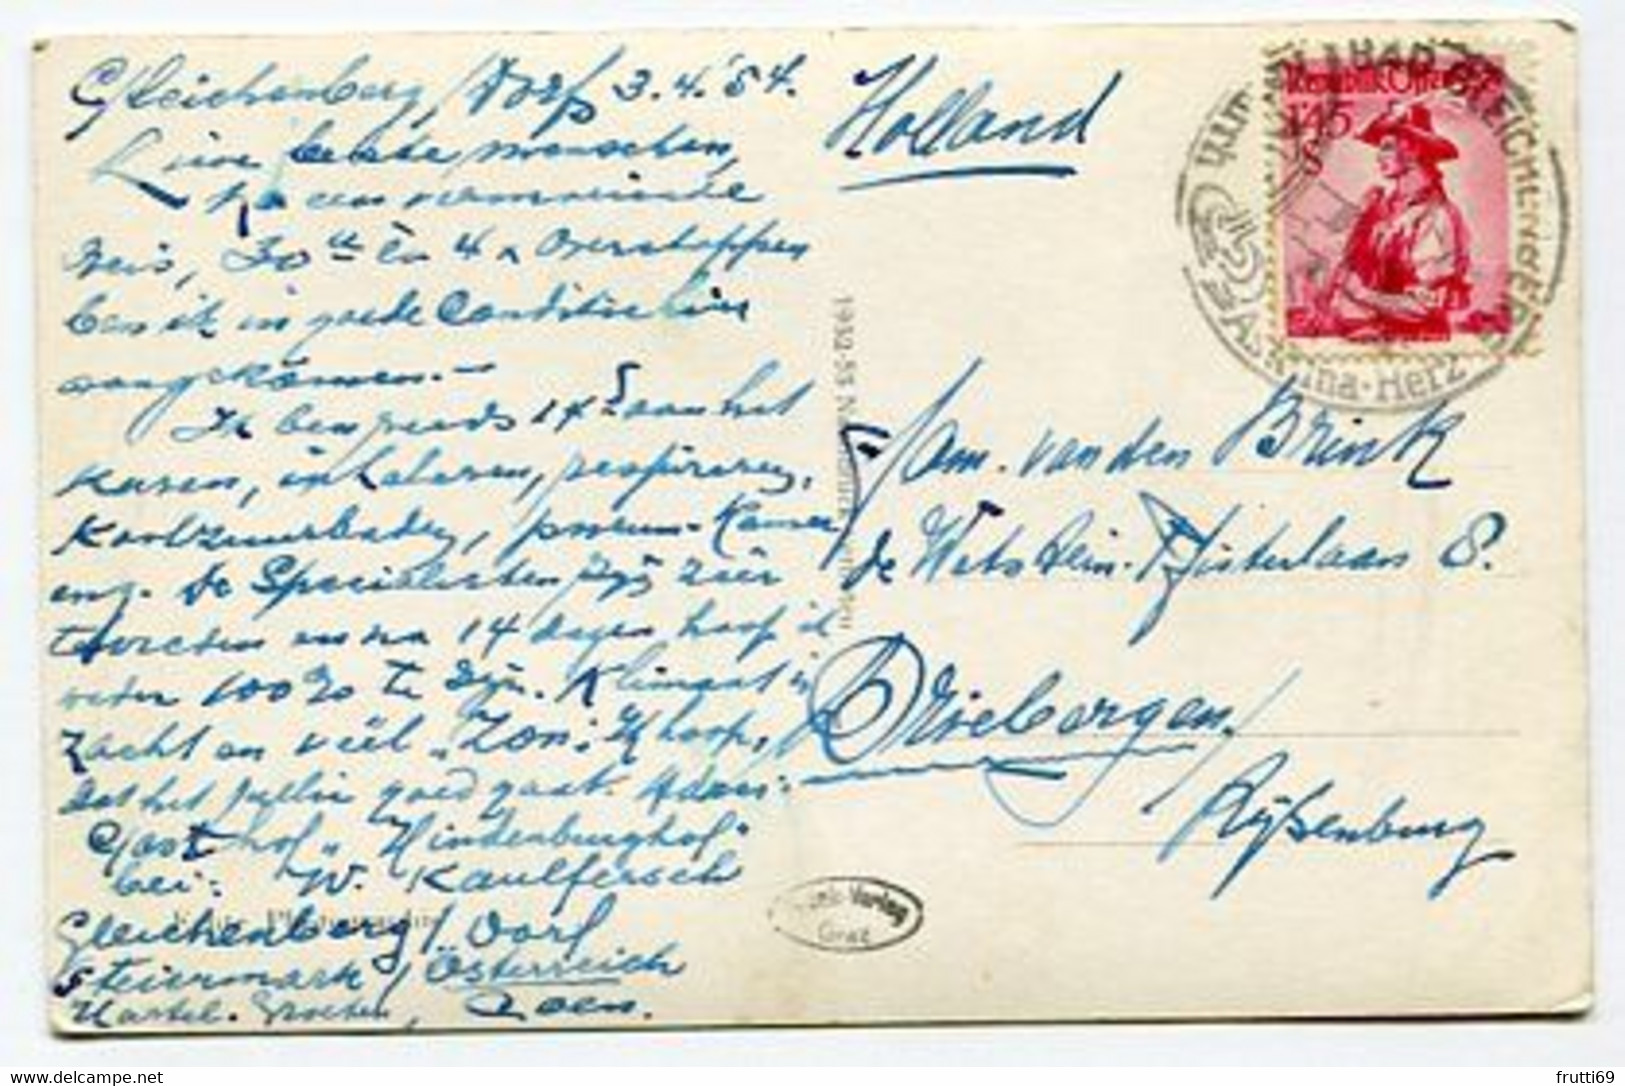 Gleichenberg/Dorf 3.4.'54.
Lieve beste menschen,
Na een vermoeiende
reis, 30 en 4 x Overstappen
ben ik in goede Conditie hier
aangekomen.—
Ik ben reeds 14 aan het
Kuren, inhaleren, respireren,
Koolzuurbaden, pneum. Kamer
enz. De Specialisten zijn zeer
tevreden en na 14 dagen hoop ik
weder 100% te zijn. Klimaat is
zacht en veel „Zon". Ik hoop,
dat het jullie goed gaat. Adres:
Gasthof „Hindenburghof"
bei: W. Kaulfersch
Gleichenberg/Dorf
Steiermark/Österreich
Hartel. Groeten, Koen.
Holland
Fam. van den Brink
de Wetstein-Pfisterlaan 8.
Driebergen/
Rijsenburg
Republik Österr
1'45
S
KURORT BAD GLEICHENBERG
Asthma-Herz
1952-53
Verlag
Graz